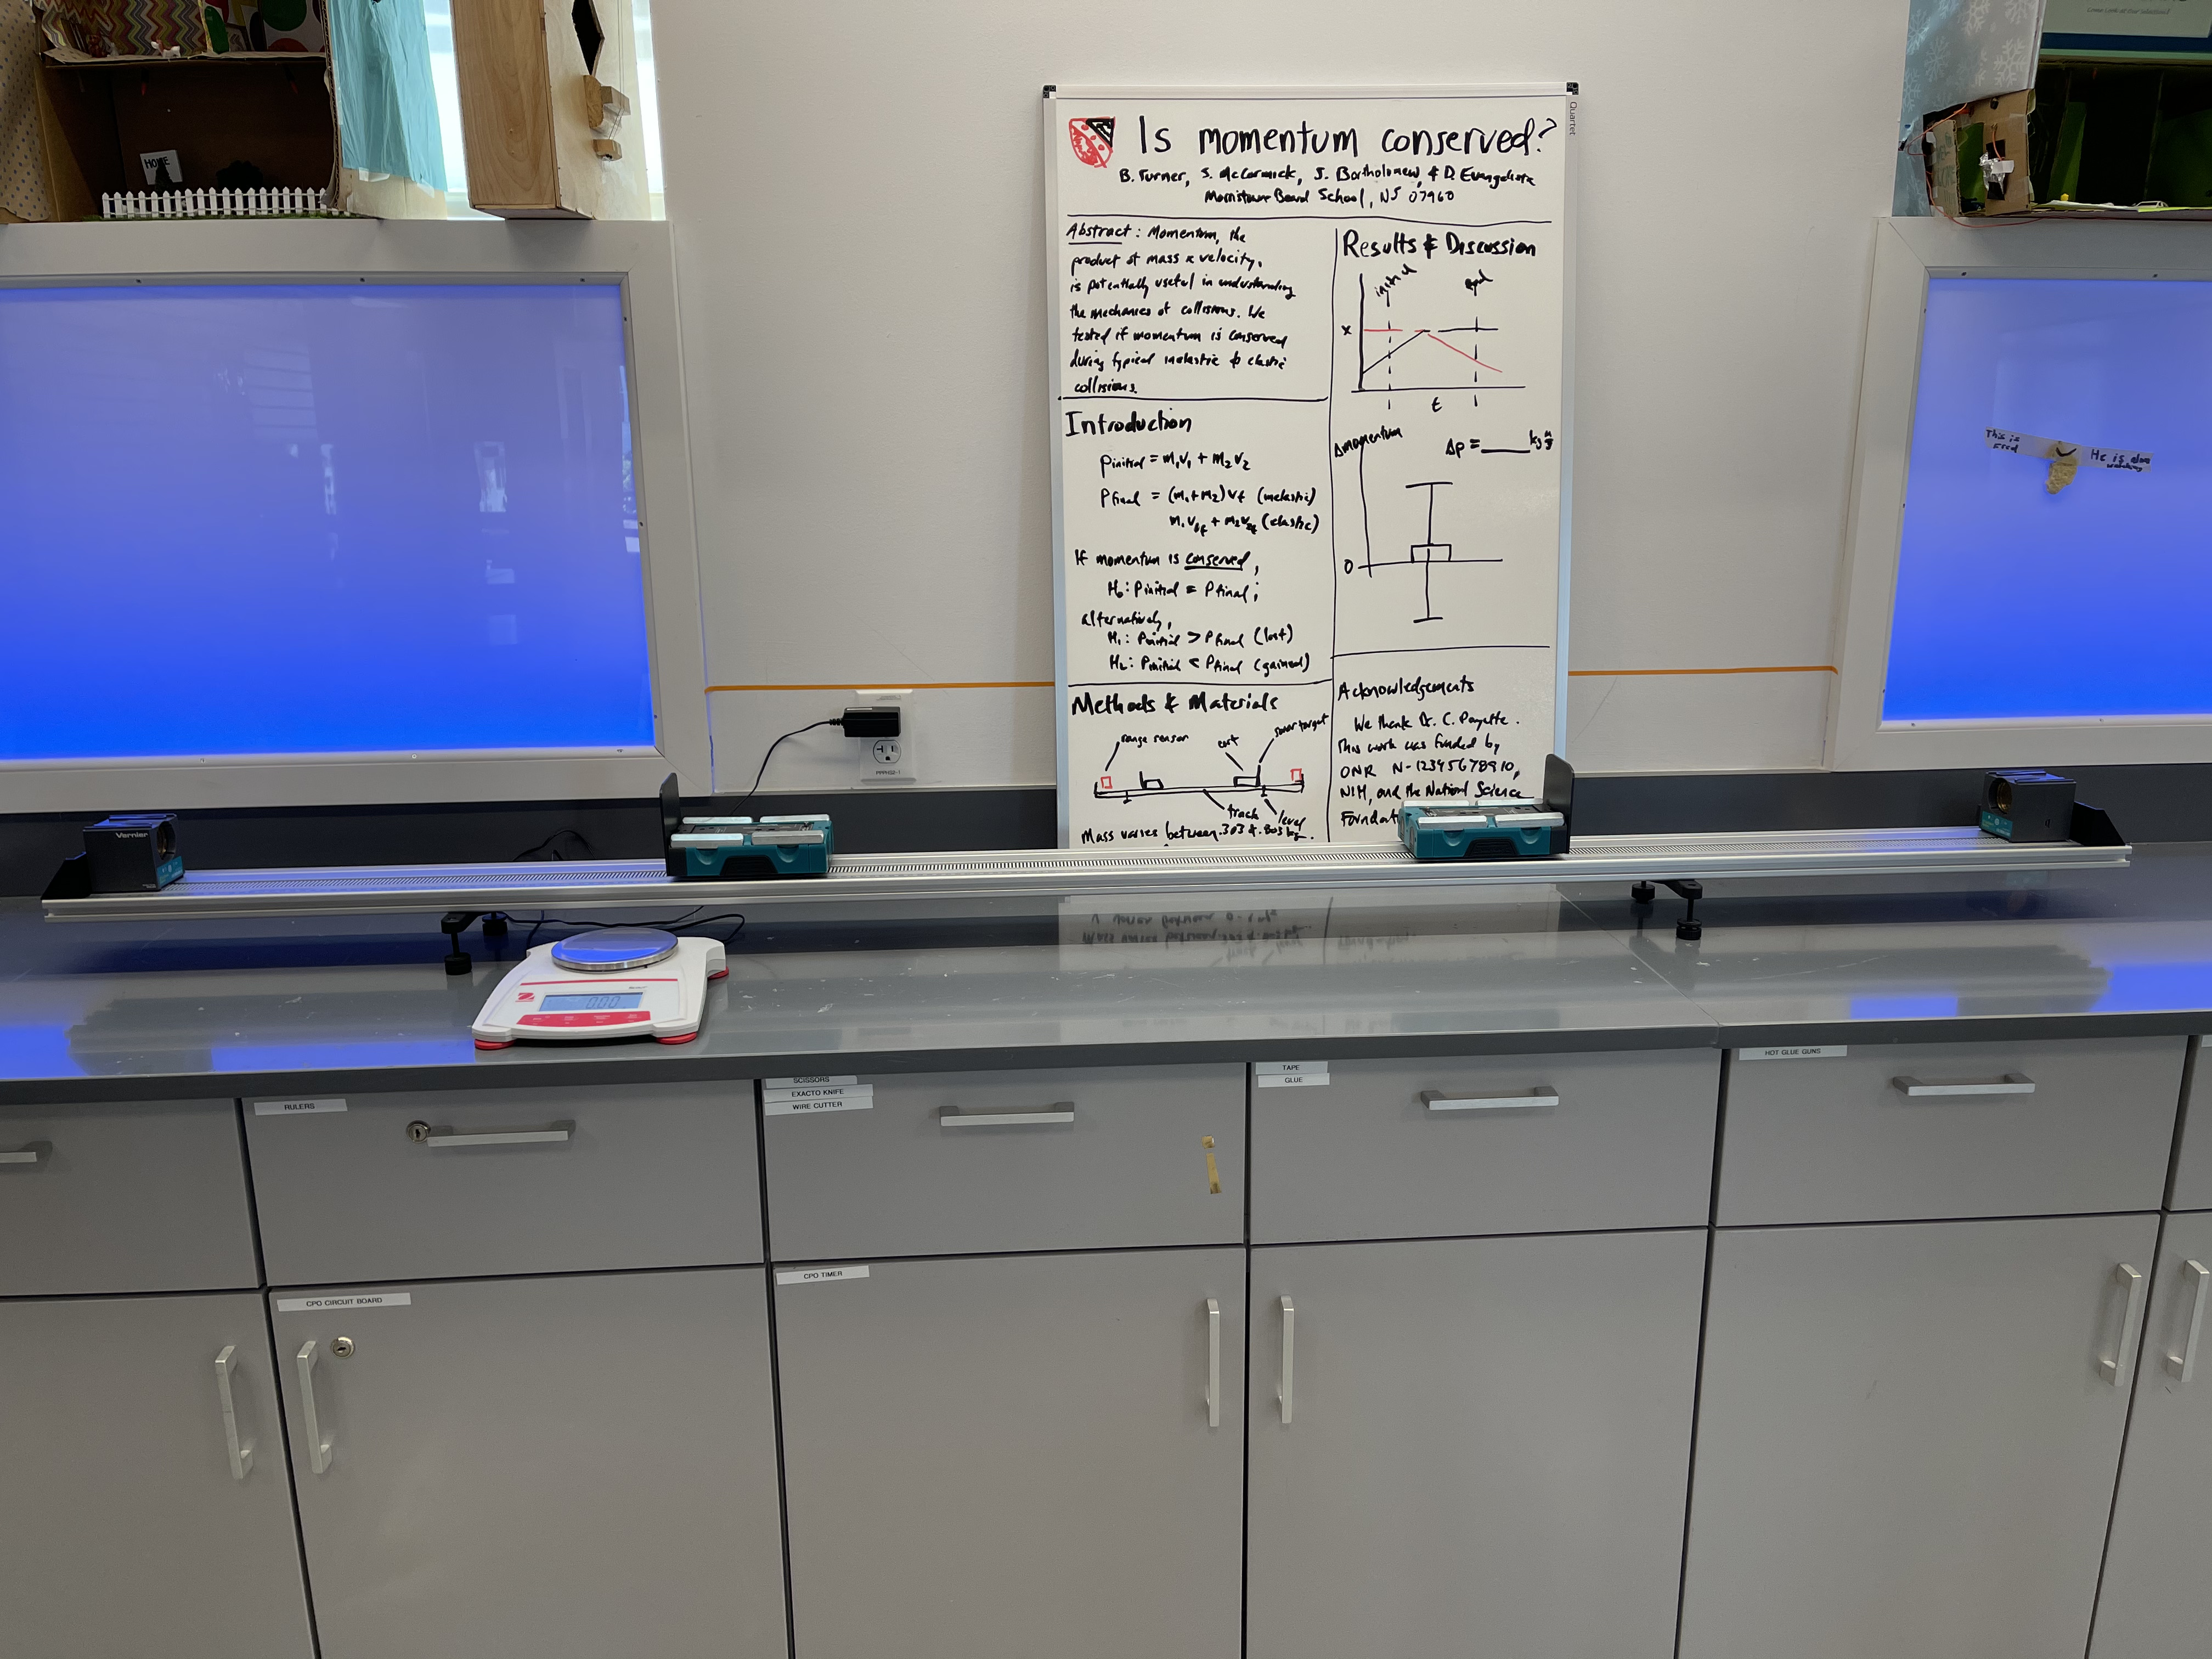 HOME
Quartet
Is momentum conserved?
B. Turner, S. McCormick, J. Bartholomew, & D. Evangelista
Morristown Beard School, NJ 07960
Abstract: Momentum, the
product of mass & velocity,
is potentially useful in understanding
the mechanics of collisions. We
tested if momentum is conserved
during typical inelastic & elastic
collisions.
Introduction
Pinitial = m₁v₁ + m₂v₂
Pfinal = (m₁+m₂)vf (inelastic)
m₁v₁f + m₂v₂f (elastic)
If momentum is conserved,
H₀: Pinitial = Pfinal;
alternatively,
H₁: Pinitial > Pfinal (lost)
H₂: Pinitial < Pfinal (gained)
Methods & Materials
range sensor
cart
sonar target
track
level
Mass varies between .303 & .803 kg.
Results & Discussion
initial
final
x
t
Δmomentum
Δp = ____ kg m/s
0
Acknowledgements
We thank Dr. C. Payette.
This work was funded by
ONR N-12345678910,
NIH, and the National Science
Foundat
This is
Fred
He is
Vernier
0.00
RULERS
SCISSORS
EXACTO KNIFE
WIRE CUTTER
TAPE
GLUE
HOT GLUE GUNS
CPO CIRCUIT BOARD
CPO TIMER